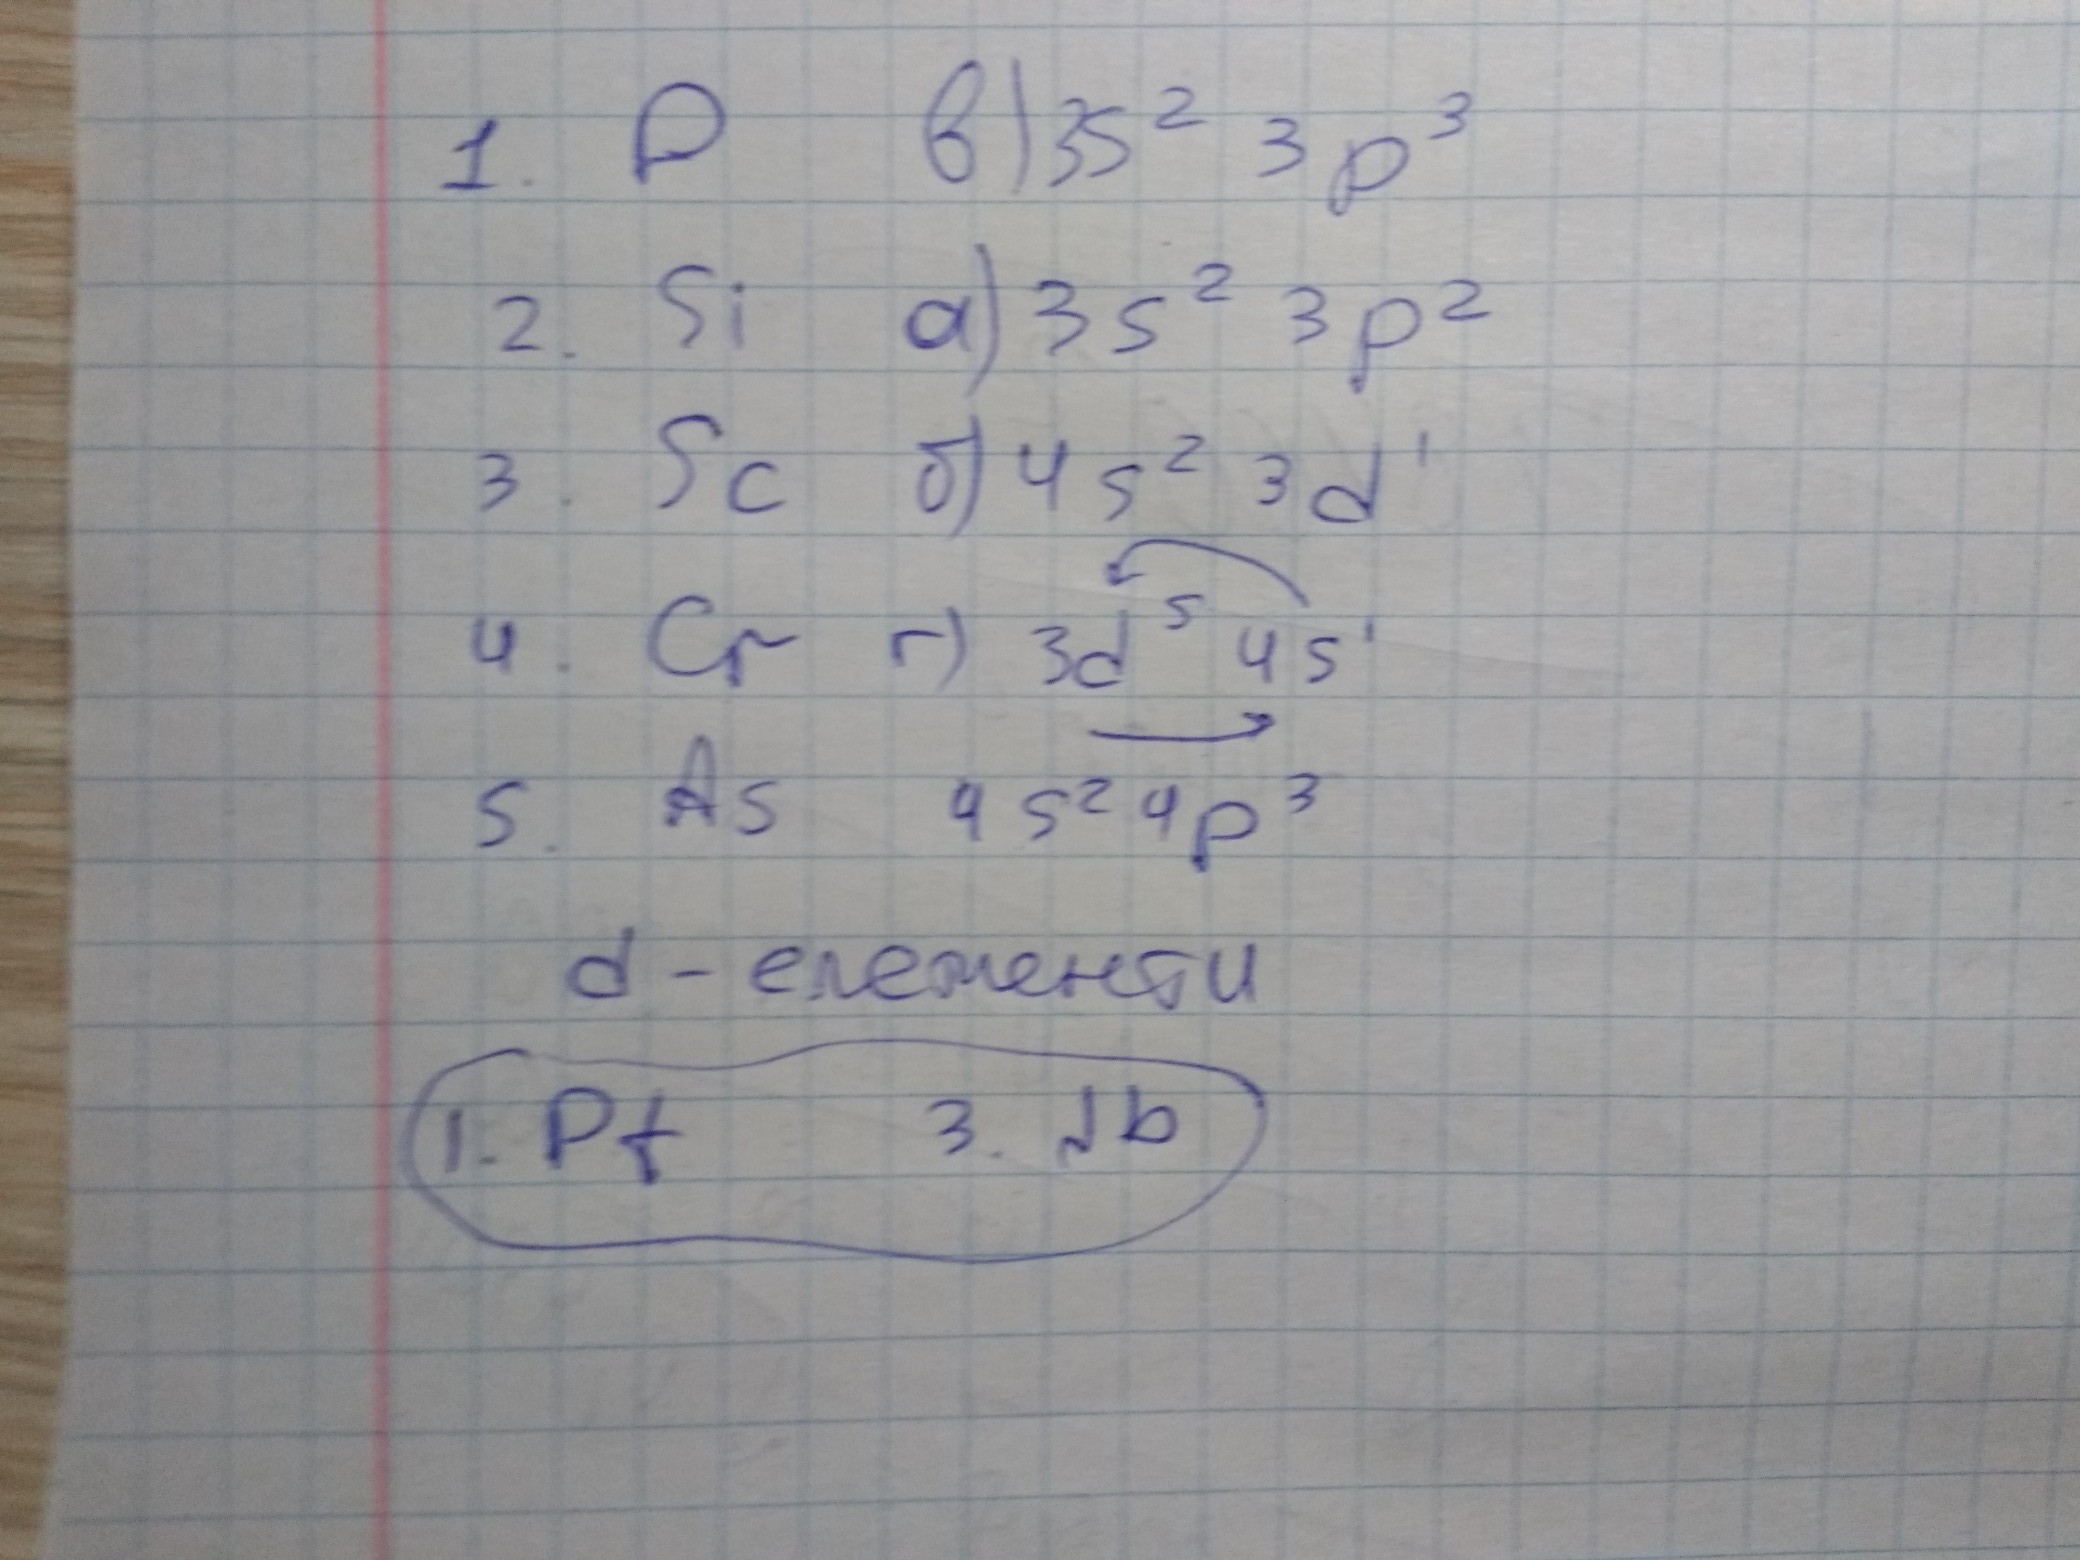 1. P в) 3s² 3p³
2. Si а) 3s² 3p²
3. Sc б) 4s² 3d¹
4. Cr г) 3d⁵ 4s¹
5. As 4s² 4p³
d - елементи
1. Pt 3. Nb